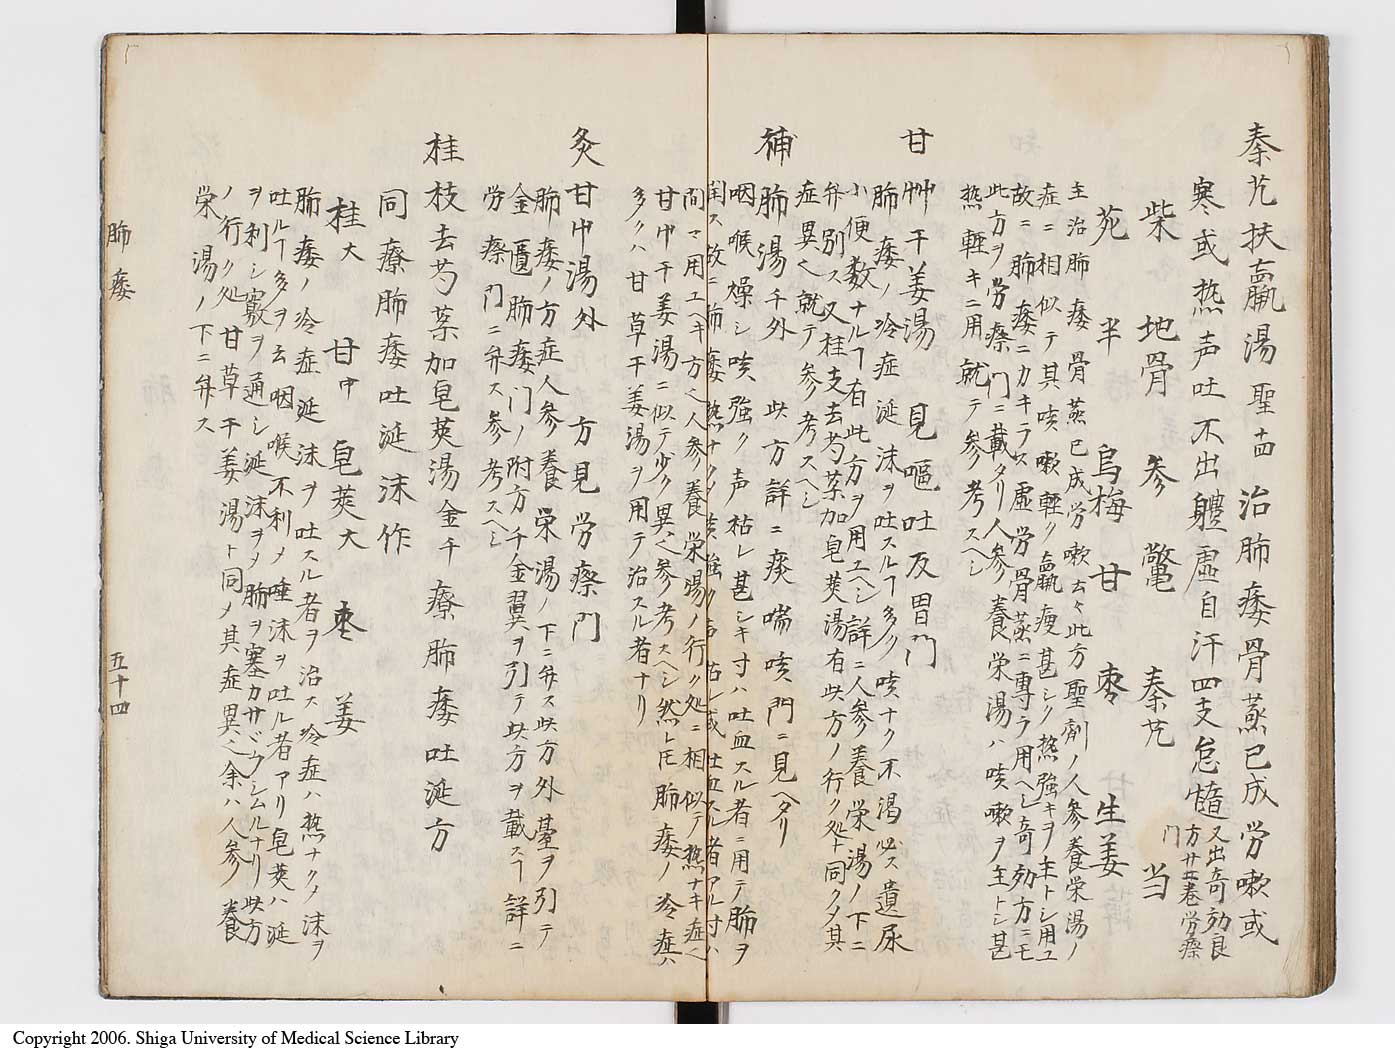 秦艽扶羸湯 聖十四 治肺痿骨蒸已成労嗽或
寒或热声吐不出軆虚自汗四支怠惰 又出奇効良
方廿二巻労瘵
門
柴 地骨 参 鼈 秦艽 当
苑 半 烏梅 甘 枣 生姜
主治肺痿骨蒸已成労嗽云々此方聖剤ノ人参養栄湯ノ
症ニ相似テ其咳嗽軽ク羸痩甚シク热強キヲ主トシ用ユ
故ニ肺痿ニカキラス虚労骨蒸ニ専ラ用ヘシ奇効方ニモ
此方ヲ労瘵門ニ載タリ人参養栄湯ハ咳嗽ヲ主トシ甚
热軽キニ用就テ参考スヘシ
甘艸干姜湯 見嘔吐反胃門
肺痿ノ冷症涎沫ヲ吐スルヿ多ク咳ナク不渇必ス遺尿
小便数ナルヿ有此方ヲ用エヘシ詳ニ人参養栄湯ノ下ニ
弁別ス又桂支去芍薬加皂莢湯有此方ノ行ク処ト同クメ其
症異也就テ参考スヘシ
補肺湯千外 此方詳ニ痰喘咳門ニ見ヘタリ
咽喉燥シ咳強ク声枯レ甚シキ寸ハ吐血スル者ニ用テ肺ヲ
潤ス故ニ肺痿热ナクメ咳強ク声枯レ或吐血スル者アル寸ハ
間マ用エヘキ方也人参養栄湯ノ行ク処ニ相似テ热ナキ症也
甘中干姜湯ニ似テ少ク異也参考スヘシ然レ𪜈肺痿ノ冷症ハ
多クハ甘草干姜湯ヲ用テ治スル者ナリ
炙甘中湯外 方見労瘵門
肺痿ノ方症人参養栄湯ノ下ニ弁ス此方外䑓ヲ引テ
金匱肺痿門ノ附方千金翼ヲ引テ此方ヲ載スヿ詳ニ
労瘵門ニ弁ス参考スヘシ
桂枝去芍薬加皂莢湯金千 療肺痿吐涎方
同療肺痿吐涎沫作
桂大 甘中 皂莢大 枣 姜
肺痿ノ冷症涎沫ヲ吐スル者ヲ治ス冷症ハ热ナクメ沫ヲ
吐ルヿ多ヲ云咽喉不利メ唾沫ヲ吐ル者アリ皂莢ハ涎
ヲ利シ竅ヲ通シ涎沫ヲメ肺ヲ塞カサヾウシムルナリ此方
ノ行ク処甘草干姜湯ト同メ其症異也余ハ人参ノ養
栄湯ノ下ニ弁ス
肺痿
五十四
Copyright 2006. Shiga University of Medical Science Library